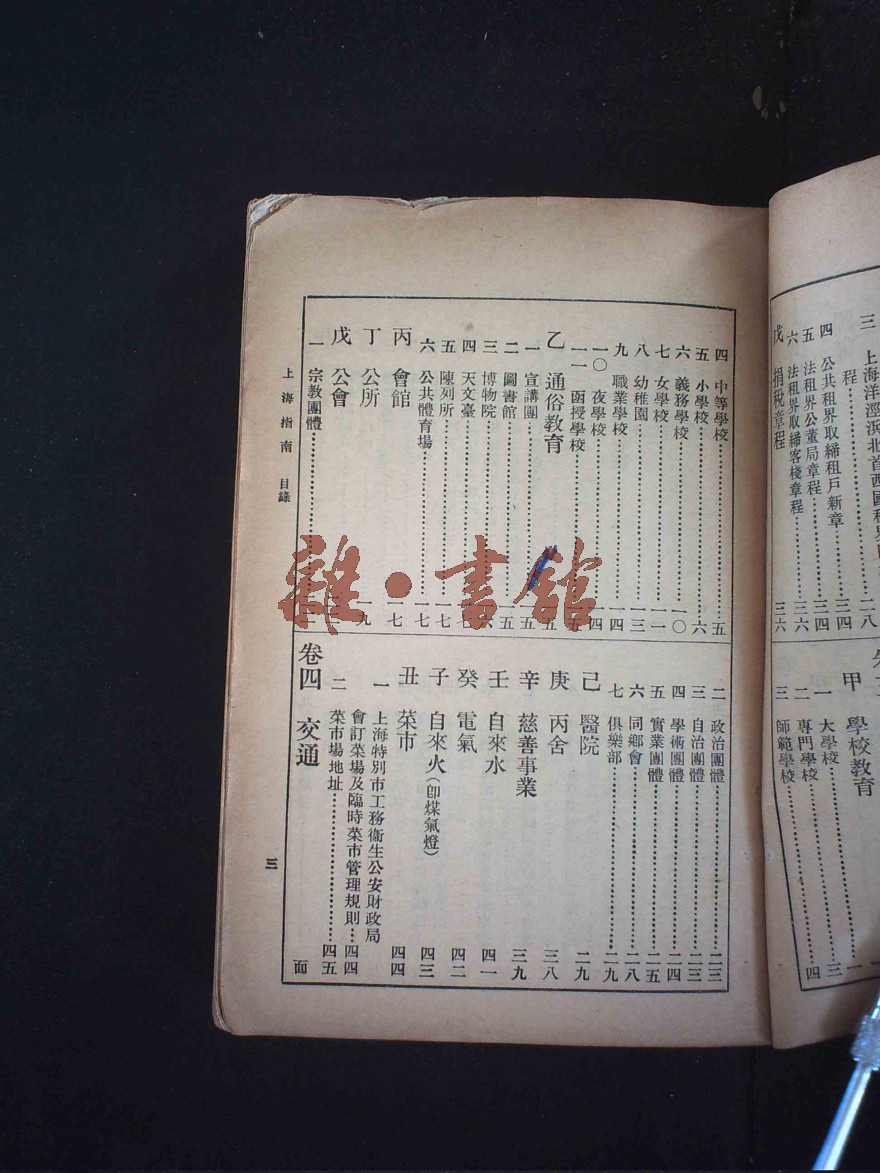 三 上海洋涇浜北首西國租界
程……二八
四 公共租界取締租戶新章……三四
五 法租界公董局章程……三四
六 法租界取締客棧章程……三六
戊 捐稅章程 三六
甲 學校教育 一
一 大學校……一
二 專門學校……三
三 師範學校……四
四 中等學校……五
五 小學校……六
六 義務學校……一〇
七 女學校……一一
八 幼稚園……一三
九 職業學校……一四
一〇 夜學校……一四
一一 函授學校……一五
乙 通俗教育 一五
一 宣講團……一五
二 圖書館……一五
三 博物院……一六
四 天文臺……一七
五 陳列所……一七
六 公共體育場……一七
丙 會館 一七
丁 公所 一九
戊 公會
一 宗教團體……
二 政治團體……二三
三 自治團體……二三
四 學術團體……二四
五 實業團體……二五
六 同鄉會……二八
七 俱樂部……二九
己 醫院 二九
庚 丙舍 三八
辛 慈善事業 三九
壬 自來水 四一
癸 電氣 四二
子 自來火(卽煤氣燈) 四三
丑 菜市 四四
一 上海特別市工務衞生公安財政局
會訂菜場及臨時菜市管理規則……四四
二 菜市場地址……四五
卷四 交通 面
上海指南 目錄
三
雜·書館